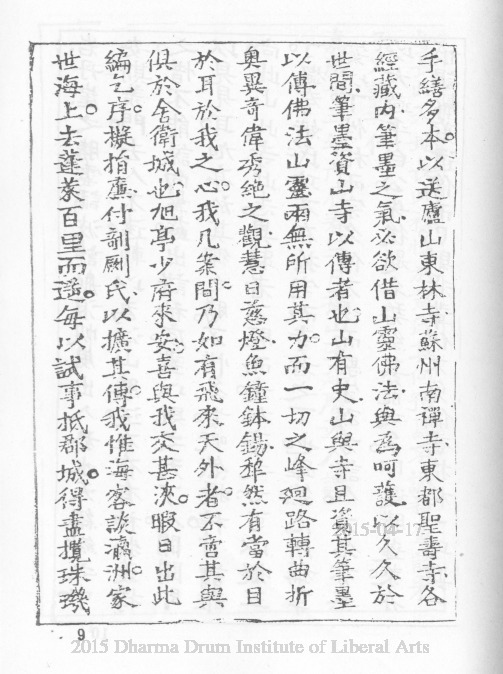 手繕多本以送廬山東林寺蘇州南禪寺東都聖壽寺各
經藏內筆墨之氣必欲借山靈佛法與為呵護以久久於
世間筆墨資山寺以傳者也山有史山與寺且資其筆墨
以傳佛法山靈兩無所用其力而一切之峰廻路轉曲折
奧異奇偉秀絕之觀慧日慈燈魚鐘鉢錫犂然有當於目
於耳於我之心我几案間乃如有飛來天外者不啻其與
俱於舍衛城也旭亭少府來安喜與我交甚浹暇日出此
編乞序擬捐廉付剞劂氏以擴其傳我惟海客談瀛洲家
世海上去蓬萊百里而遙每以試事抵郡城得盡攬珠璣
9
2015-04-17
2015 Dharma Drum Institute of Liberal Arts